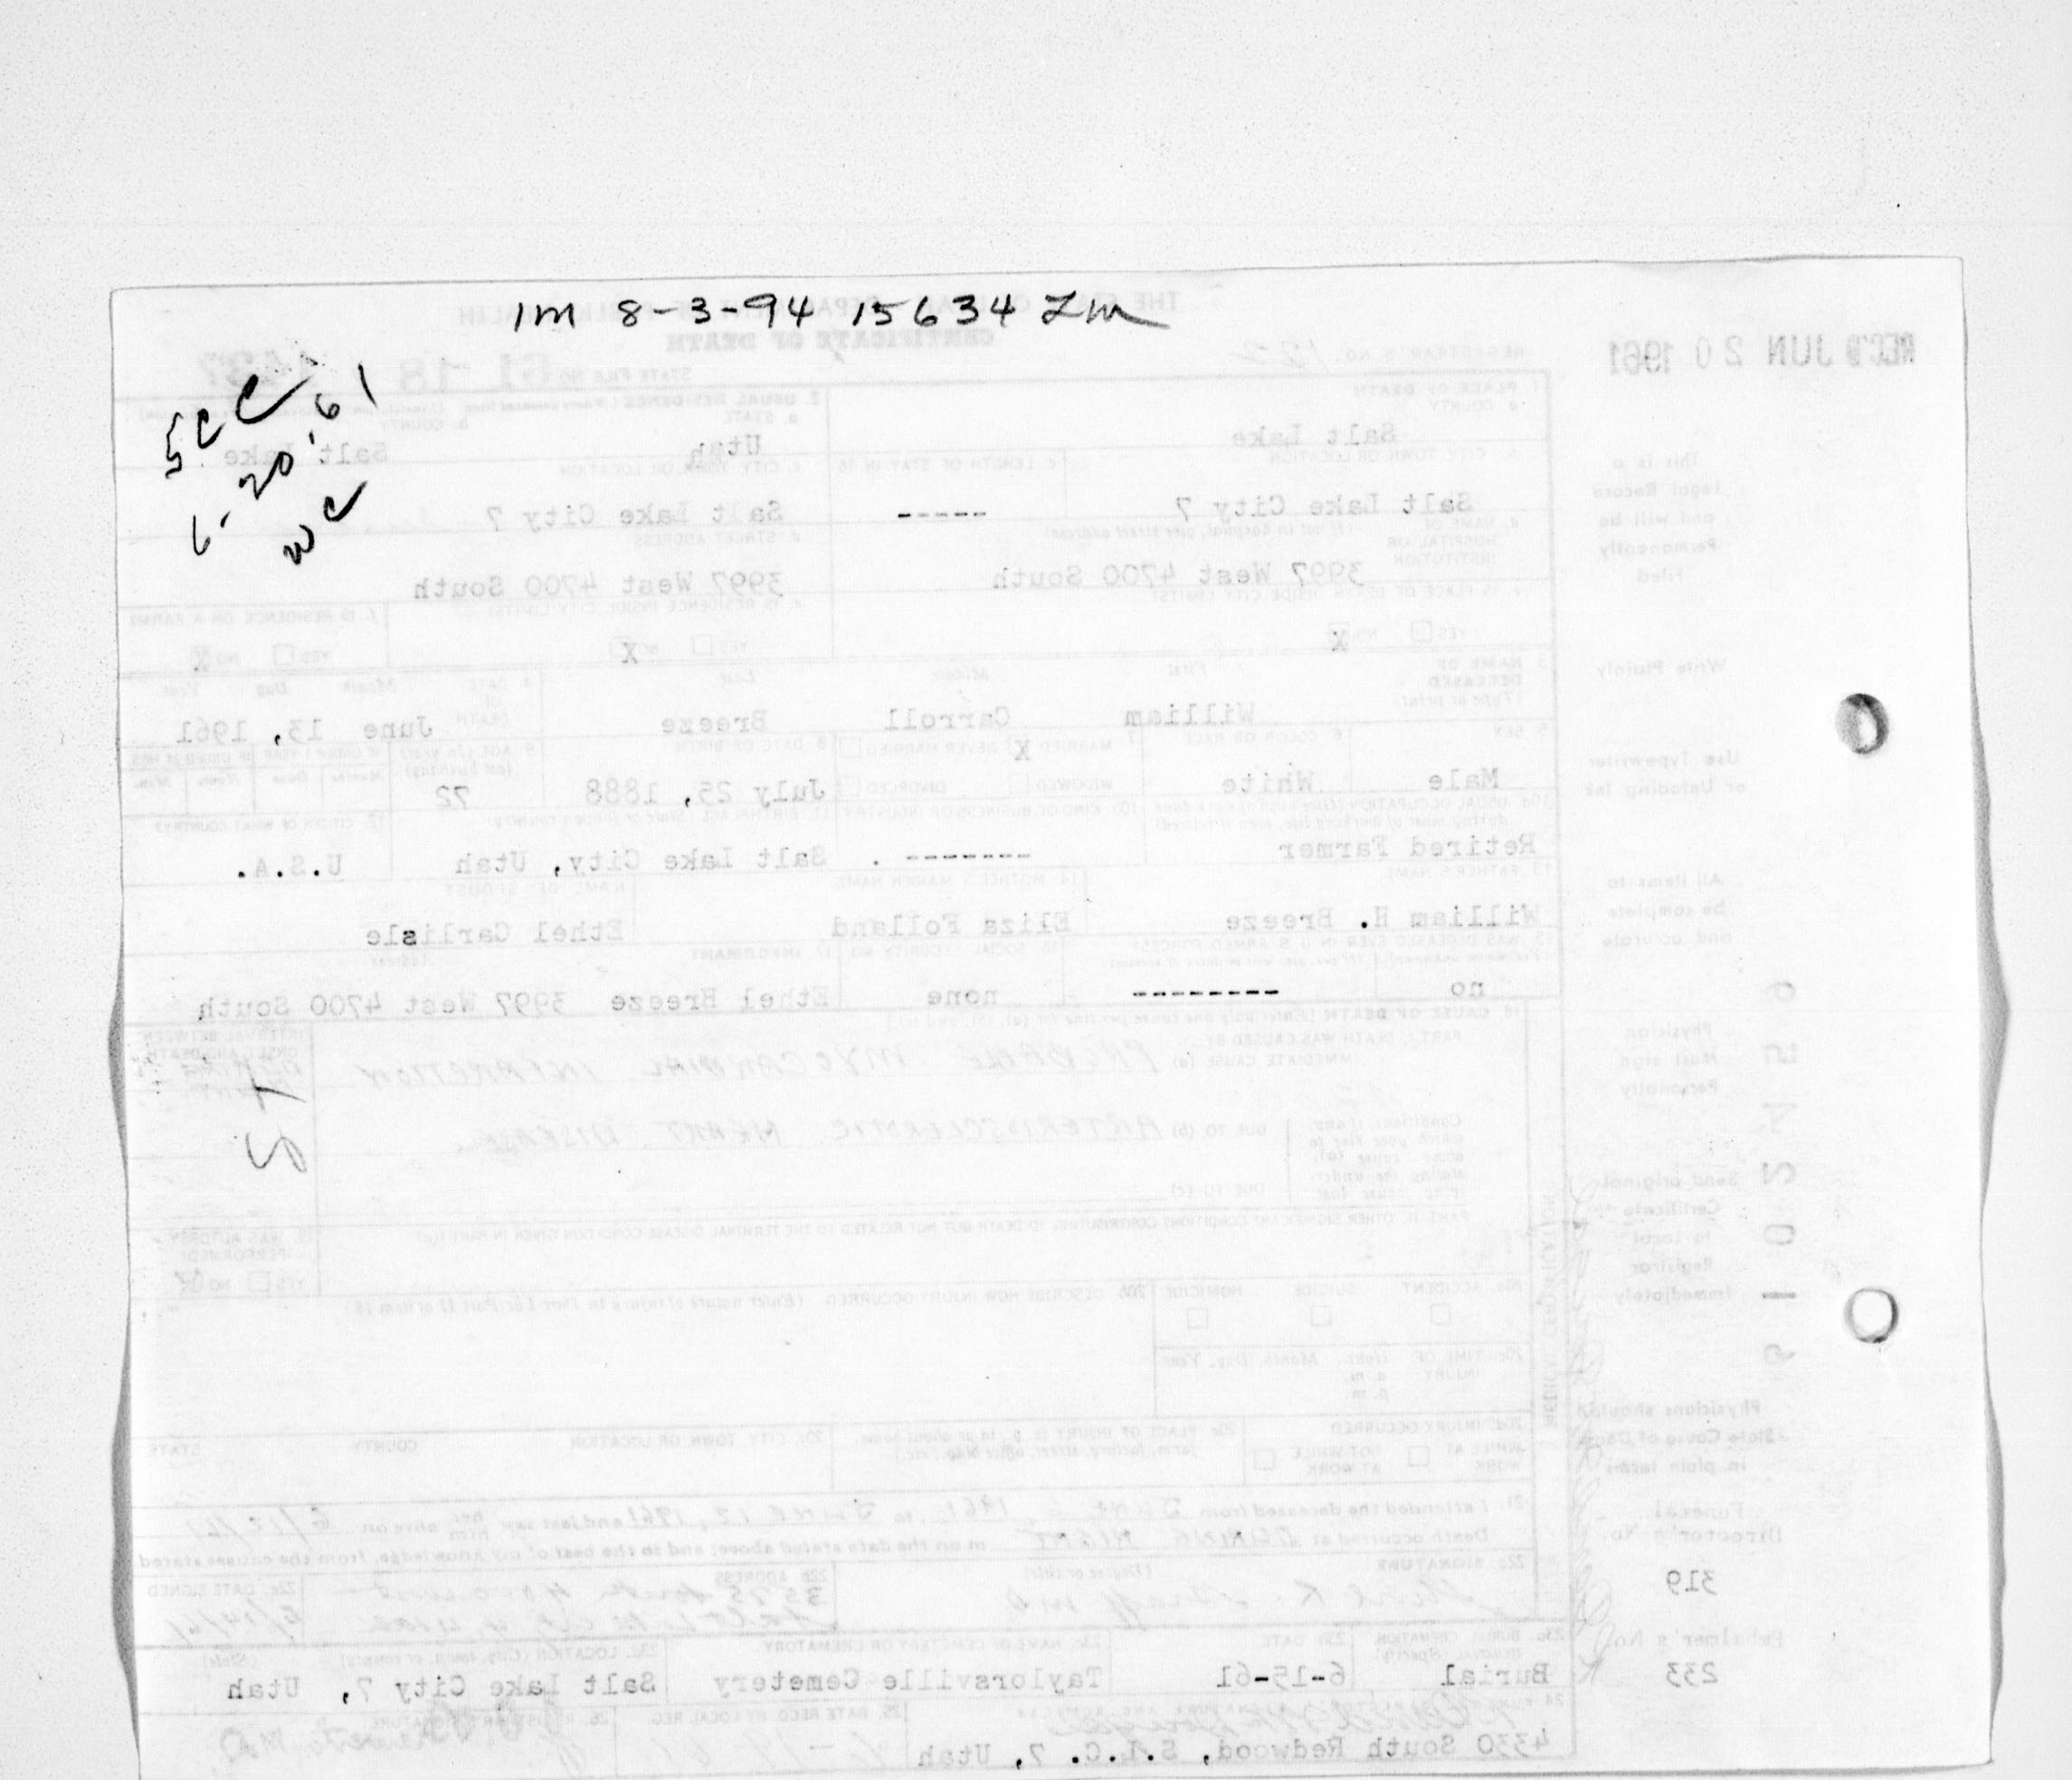 1m 8-3-94 15634 Lm
REC'D JUN 20 1961
THE STATE OF UTAH - DEPARTMENT OF PUBLIC HEALTH
CERTIFICATE OF DEATH
REGISTRAR'S NO. 122
STATE FILE NO. 61 18
5cc
6-20-61
wc
1. PLACE OF DEATH
a. COUNTY
Salt Lake
2. USUAL RESIDENCE
a. STATE
Utah
b. COUNTY
Salt Lake
b. CITY TOWN, OR LOCATION
Salt Lake City 7
c. LENGTH OF STAY IN 1b
-----
c. CITY TOWN, OR LOCATION
Salt Lake City 7
d. NAME OF HOSPITAL OR INSTITUTION
(If not in hospital, give street address)
3997 West 4700 South
d. STREET ADDRESS
3997 West 4700 South
e. IS PLACE OF DEATH INSIDE CITY LIMITS?
YES NO X
e. IS RESIDENCE INSIDE CITY LIMITS?
YES NO X
f. IS RESIDENCE ON A FARM?
YES NO X
3. NAME OF DECEASED
(Type or print)
First Middle Last
William Carroll Breeze
4. DATE OF DEATH
Month Day Year
June 13, 1961
5. SEX
Male
6. COLOR OR RACE
White
7. MARRIED X NEVER MARRIED
WIDOWED DIVORCED
8. DATE OF BIRTH
July 25, 1888
9. AGE (In years last birthday)
72
IF UNDER 1 YEAR
IF UNDER 24 HRS.
Months Days Hours Min.
10a. USUAL OCCUPATION (Give kind of work done during most of working life, even if retired)
Retired Farmer
10b. KIND OF BUSINESS OR INDUSTRY
--------
11. BIRTHPLACE (State or foreign country)
Salt Lake City, Utah
12. CITIZEN OF WHAT COUNTRY?
U.S.A.
13. FATHER'S NAME
William H. Breeze
14. MOTHER'S MAIDEN NAME
Eliza Folland
NAME OF SPOUSE
Ethel Carlisle
15. WAS DECEASED EVER IN U.S. ARMED FORCES?
no --------
16. SOCIAL SECURITY NO.
none
17. INFORMANT Address
Ethel Breeze 3997 West 4700 South
18. CAUSE OF DEATH [Enter only one cause per line for (a), (b), and (c)]
PART I. DEATH WAS CAUSED BY:
IMMEDIATE CAUSE (a) PROBABLE MYOCARDIAL INFARCTION
INTERVAL BETWEEN ONSET AND DEATH
Conditions, if any, which gave rise to above cause (a), stating the underlying cause last
DUE TO (b) ARTERIOSCLEROTIC HEART DISEASE
DUE TO (c)
PART II. OTHER SIGNIFICANT CONDITIONS CONTRIBUTING TO DEATH BUT NOT RELATED TO THE TERMINAL DISEASE CONDITION GIVEN IN PART I (a)
19. WAS AUTOPSY PERFORMED?
YES NO
20a. ACCIDENT SUICIDE HOMICIDE
20b. DESCRIBE HOW INJURY OCCURRED (Enter nature of injury in Part I or Part II of item 18.)
20c. TIME OF INJURY
Hour Month, Day, Year
a. m.
p. m.
20d. INJURY OCCURRED
WHILE AT WORK NOT WHILE AT WORK
20e. PLACE OF INJURY (e. g., in or about home, farm, factory, street, office bldg., etc.)
20f. CITY, TOWN OR LOCATION COUNTY STATE
21. I attended the deceased from JUNE 1961, to JUNE 12, 1961 and last saw her him alive on 6/12/61
Death occurred at DURING NIGHT m on the date stated above; and to the best of my knowledge, from the causes stated.
22a. SIGNATURE (Degree or title)
22b. ADDRESS
3575 South 4000 West
Salt Lake City, Utah
22c. DATE SIGNED
6/14/61
23a. BURIAL, CREMATION, REMOVAL (Specify)
Burial
23b. DATE
6-15-61
23c. NAME OF CEMETERY OR CREMATORY
Taylorsville Cemetery
23d. LOCATION (City, town, or county) (State)
Salt Lake City 7, Utah
4330 South Redwood, S.L.C. 7, Utah
25. DATE RECD BY LOCAL REG.
26. REGISTRAR'S SIGNATURE
This is a Legal Record and will be Permanently Filed
Write Plainly
Use Typewriter or Unfading Ink
All items to be complete and accurate
Physician Must sign Personally
Send original Certificate to Local Registrar Immediately
Physicians should State Cause of Death in plain terms
Funeral Director's No.
319
Embalmer's No.
233
MEDICAL CERTIFICATION